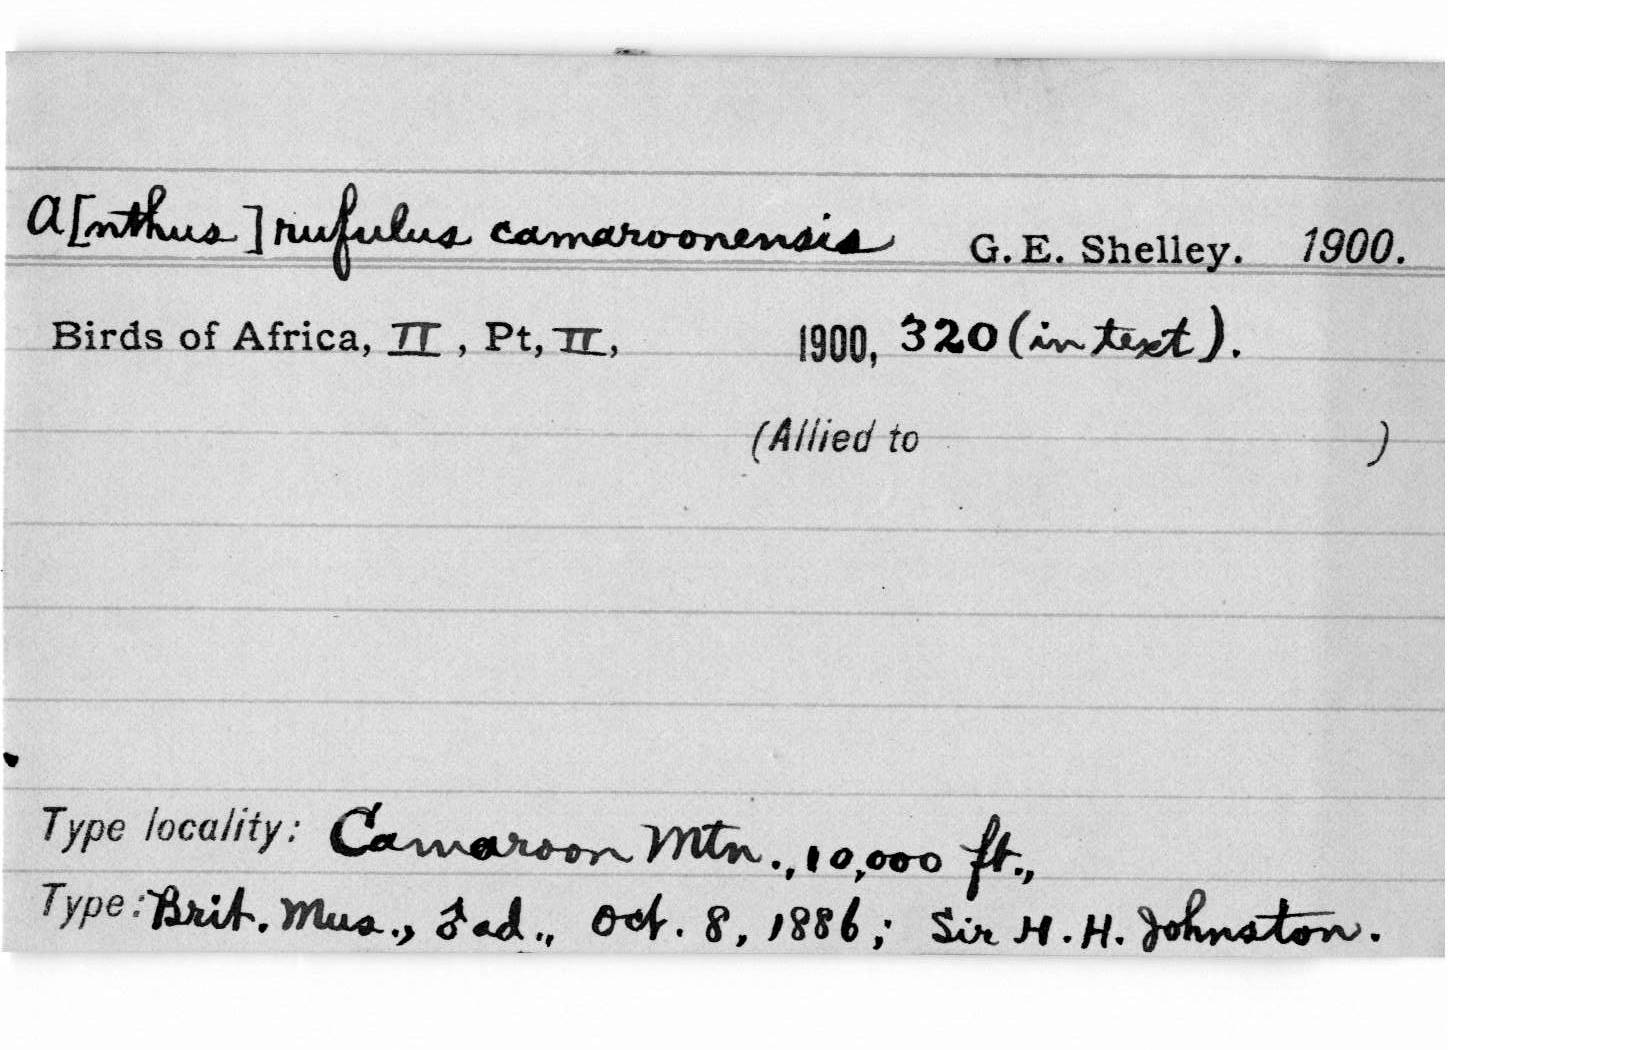 A[nthus] rufulus camaroonensis G. E. Shelley. 1900.
Birds of Africa, II, Pt, II, 1900, 320 (in text).
(Allied to )
Type locality: Camaroon Mtn., 10,000 ft.,
Type: Brit. Mus., ♂ ad., Oct. 8, 1886; Sir H. H. Johnston.